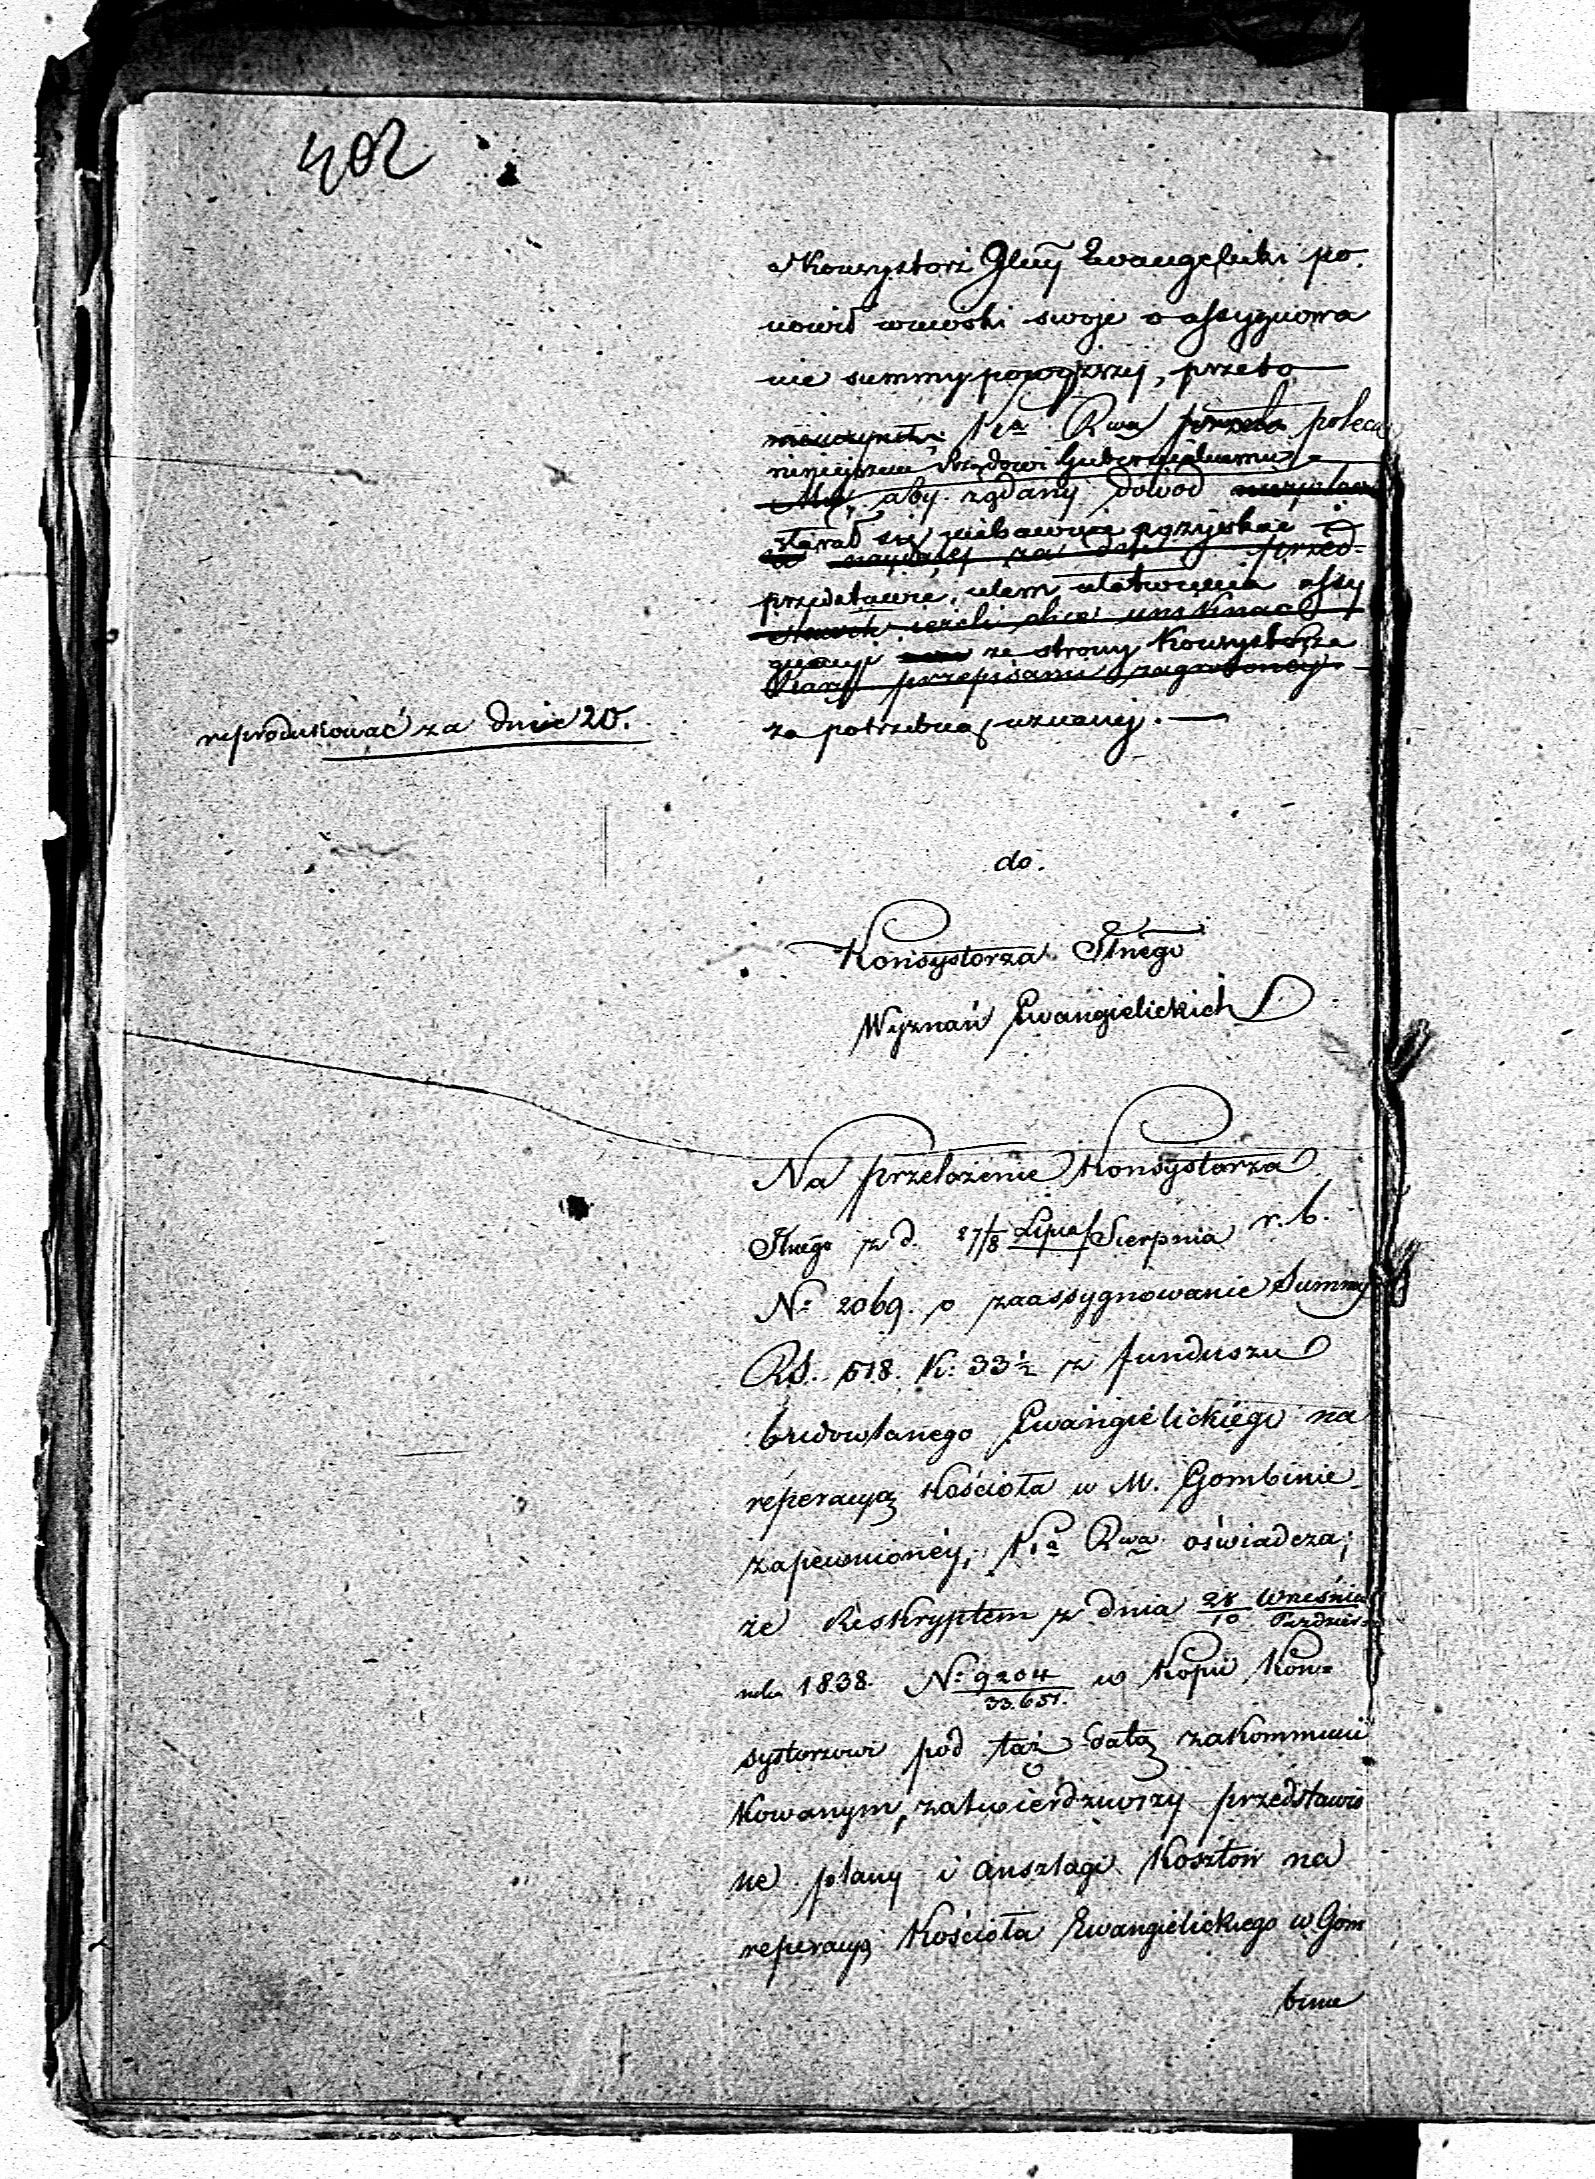 402
a Konsystorz Glny Ewangelicki po
nowił wnioski swoje o assygnowa
nie summy powyższej, przeto
Kia Rwa przeto poleca
niniejszem Rządowi Gubernialnemu
aby żądany dowód
starał się niebawnie pozyskać i
najdalej za dni przed
przedstawić, celem ułatwienia assy
jeżeli chce uniknąć
gnacyi ze strony Konsystorza
Kary przepisami zagrożoney
za potrzebną uznanej.
reprodukować za dnie 20.
do
Konsystorza Glnego
Wyznań Ewangielickich
Na przełożenie Konsystorza
Glnego z d. 27/8 Lipca/Sierpnia r. b.
No 2069. o zaassygnowanie Summy
RS. 518. K: 33½ z funduszu
budowlanego Ewangielickiego na
reperacyą Kościoła w M. Gombinie
zapewnioney, Kia Rwa oświadcza,
że Reskryptem z dnia 28 Września/10 Paździer
nika 1838. No 9204/33.651. w Kopii Kon=
systorzowi pod taż datą zakommuni
kowanym, zatwierdziwszy przedstawio
ne plany i anszlagi Kosztów na
reperacyą Kościoła Ewangielickiego w Gom
binie